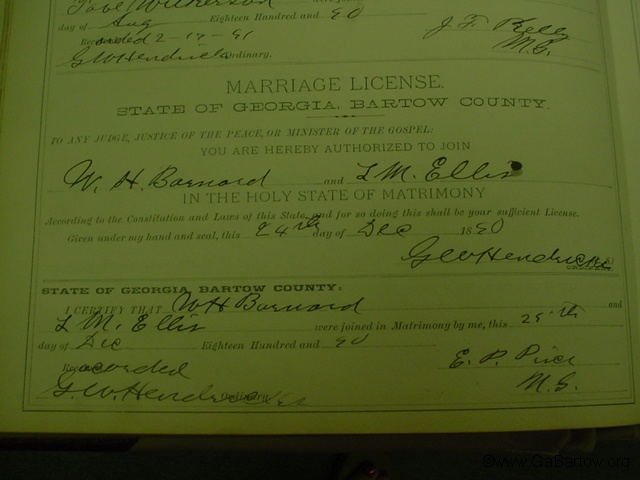 day of Aug Eighteen Hundred and 90
Recorded 2-17-91 J. F. Kelly
G W Hendricks Ordinary. M. G.
MARRIAGE LICENSE.
STATE OF GEORGIA, BARTOW COUNTY.
TO ANY JUDGE, JUSTICE OF THE PEACE, OR MINISTER OF THE GOSPEL:
YOU ARE HEREBY AUTHORIZED TO JOIN
W. H. Barnard and L M. Ellis
IN THE HOLY STATE OF MATRIMONY
According to the Constitution and Laws of this State, and for so doing this shall be your sufficient License.
Given under my hand and seal, this 24th day of Dec 1890
G W Hendricks
STATE OF GEORGIA, BARTOW COUNTY:
I CERTIFY THAT W H Barnard and
L M. Ellis were joined in Matrimony by me, this 25th
day of Dec Eighteen Hundred and 90
Recorded E. P.
G. W. Hendricks Ordinary. M. G.
©www.GaBartow.org